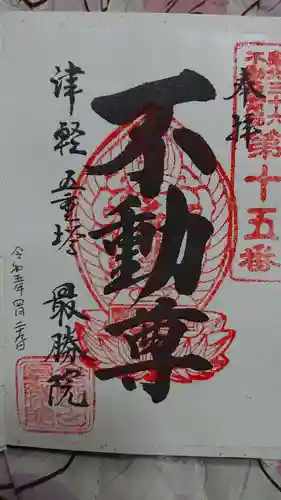 奉拝
東北三十六
不動尊霊場
第十五番
不動尊
津軽五重塔 最勝院
令和五年四月二十九日